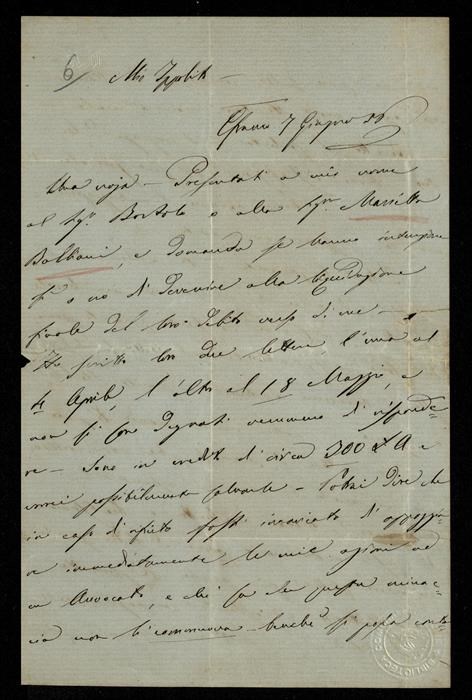 6
Mio Ippolito
7 Giugno 
Una noja – Presentati a mio nome
al Sigr Bortolo o alla Sigra Marietta
Balbiani, e domanda se hanno intenzione
sì o no di devenire alla liquidazione
finale del loro debito verso di me –
Ho scritto loro due lettere, l'una al
4 Aprile, l'altra al 18 Maggio, e
non si sono degnati nemmeno di risponde=
re – Sono in credito di circa 300 A e
vorrei possibilmente salvarle – Potrai dire che
in caso di rifiuto fosti incaricato d'appoggia=
re immediatamente le mie azioni ad
un Avvocato, e chi sa che questa minac=
cia non li commuova – benchè si possa